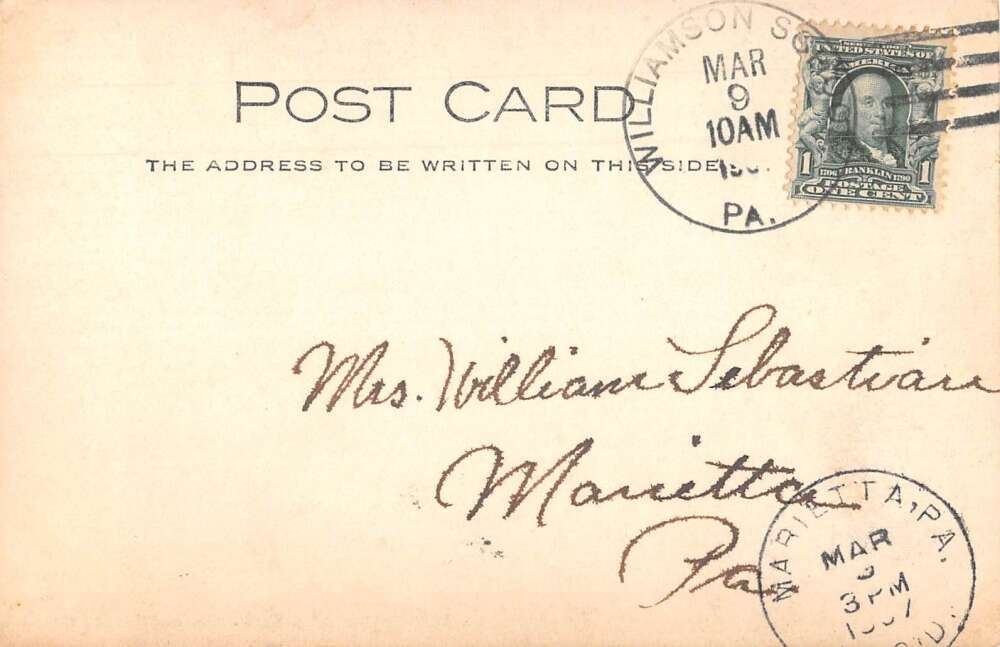 POST CARD
THE ADDRESS TO BE WRITTEN ON THIS SIDE
WILLIAMSON
MAR
9
10AM
PA.
UNITED STATES OF
AMERICA
1706 FRANKLIN 1790
1 POSTAGE 1
ONE CENT
Mrs. William Sebastian
Marietta
Pa
MARIETTA, PA.
MAR
9
3 PM
1907